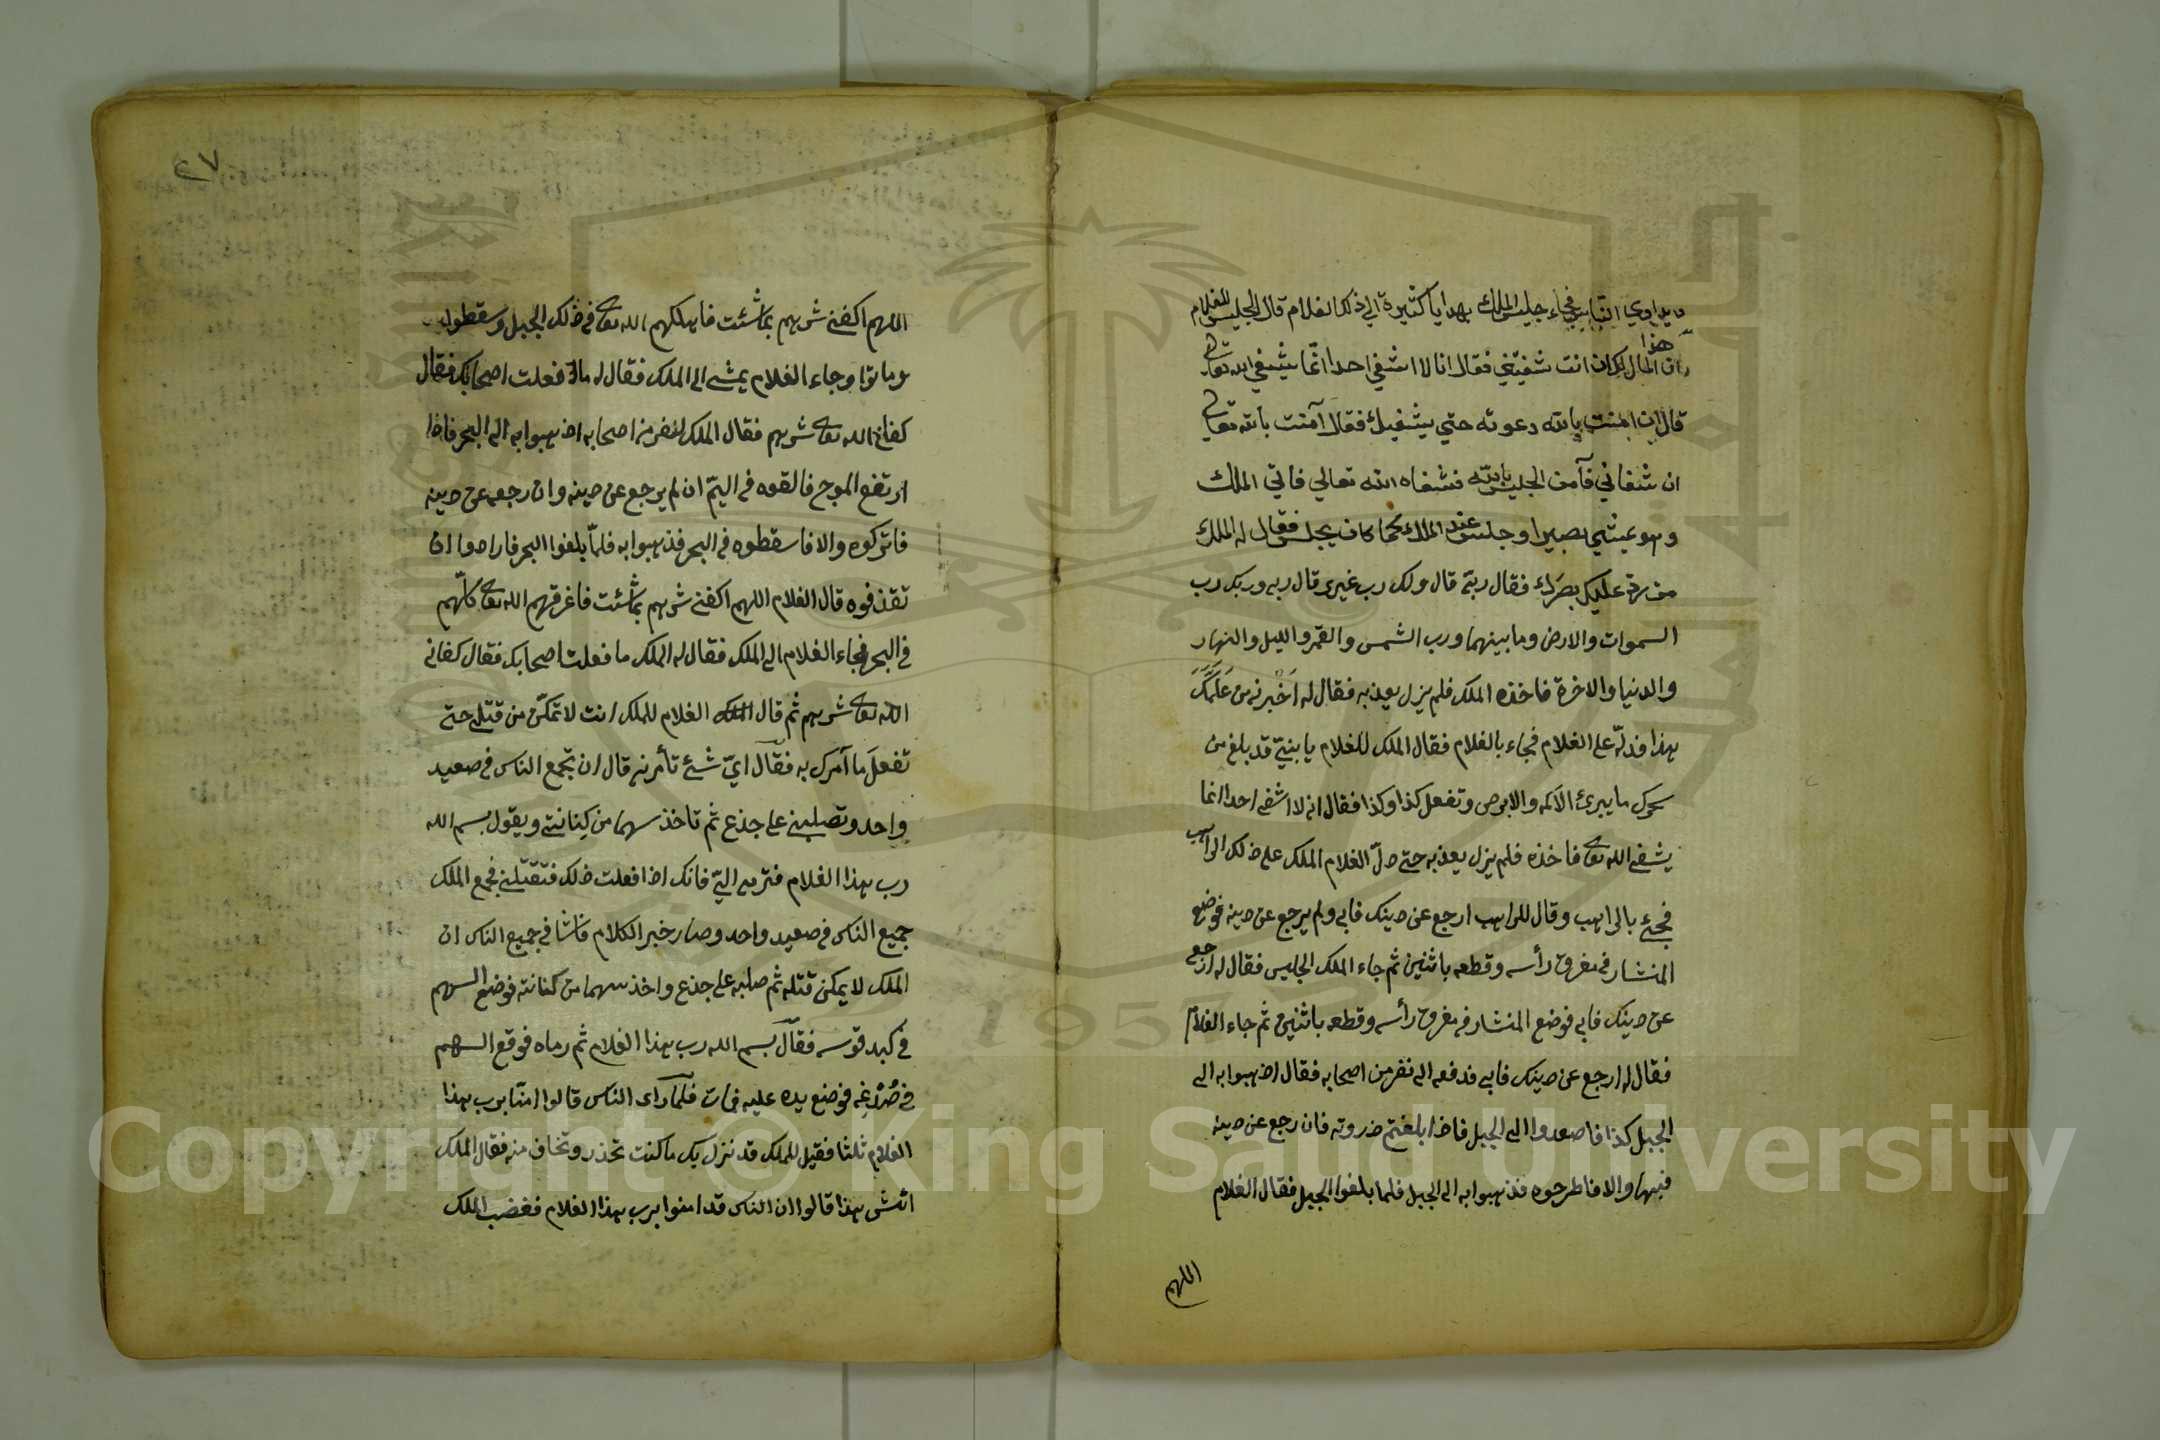 ويداوي الناس فجاء جليس الملك بهدايا كثيرة الي ذلك الغلام قال الجليس للغلام
ان هذا المال لك ان انت شفيتني فقال انا لا اشفي احدا انما يشفي الله تعالى
قال ان امنت بالله دعوته حتي يشفيك فقال آمنت بالله تعالى
ان شفاني فآمن الجليس بالله فشفاه الله تعالي فاتي الملك
وهو يمشي بصيرا وجلس عند الملك كما كان يجلس فقال له الملك
من رد عليك بصرك فقال ربي قال ولك رب غيرى قال ربي وربك رب
السموات والارض وما بينهما ورب الشمس والقمر والليل والنهار
والدنيا والاخرة فاخذه الملك فلم يزل يعذبه فقال له اخبرني من علمك
بهذا فدله على الغلام فجاء بالغلام فقال الملك للغلام يا بني قد بلغ من
سحرك ما يبرئ الاكمه والابرص وتفعل كذا وكذا فقال اني لا اشفى احدا انما
يشفى الله تعالى فاخذه فلم يزل يعذبه حتى دل الغلام الملك على ذلك الراهب
فجئ بالراهب وقال للراهب ارجع عن دينك فابى ولم يرجع عن دينه فوضع
المنشار فى مفروق رأسه وقطعه باثنين ثم جاء الملك الجليس فقال له ارجع
عن دينك فابى فوضع المنشار فى مفروق رأسه وقطعه باثنين ثم جاء الغلام
فقال له ارجع عن دينك فابى فدفعه الى نفر من اصحابه فقال اذهبوا به الى
الجبل كذا فاصعدوا الى الجبل فاذا بلغتم ذروته فان رجع عن دينه
فبها والا فاطرحوه فذهبوا به الى الجبل فلما بلغوا الجبل فقال الغلام
اللهم
٢٧
اللهم اكفنى شرهم بما شئت فاهلكهم الله تعالى فى ذلك الجبل وسقطوا
وماتوا وجاء الغلام يمشى الى الملك فقال له ماذا فعلت اصحابك فقال
كفانى الله تعالى شرهم فقال الملك لنفر من اصحابه اذهبوا به الى البحر فاذا
ارتفع الموج فالقوه فى اليم ان لم يرجع عن دينه وان رجع عن دينه
فاتركوه والا فاسقطوه فى البحر فذهبوا به فلما بلغوا البحر فارادوا ان
تقذفوه قال الغلام اللهم اكفنى شرهم بما شئت فاغرقهم الله تعالى كلهم
فى البحر فجاء الغلام الى الملك فقال له الملك ما فعلت اصحابك فقال كفانى
الله تعالى شرهم ثم قال الغلام للملك انت لا تمكن من قتلى حتى
تفعل ما آمرك به فقال اى شئ تأمرنى قال ان تجمع الناس فى صعيد
واحد وتصلبنى على جذع ثم تاخذ سهما من كنانتى ويقول بسم الله
رب هذا الغلام فترمى الى فانك اذا فعلت ذلك فتقتلنى فجمع الملك
جميع الناس فى صعيد واحد وصار خبر الكلام فاشا فى جميع الناس ان
الملك لا يمكن قتله ثم صلبه على جذع واخذ سهما من كنانته فوضع السهم
فى كبد قوسه فقال بسم الله رب هذا الغلام ثم رماه فوقع السهم
فى صدغه فوضع يده عليه فمات فلما راى الناس قالوا امنا برب هذا
الغلام ثلثا فقيل للملك قد نزل بك ما كنت تحذر وتخاف منه فقال الملك
ائش هذا قالوا ان الناس قد امنوا برب هذا الغلام فغضب الملك
Copyright © King Saud University
1957